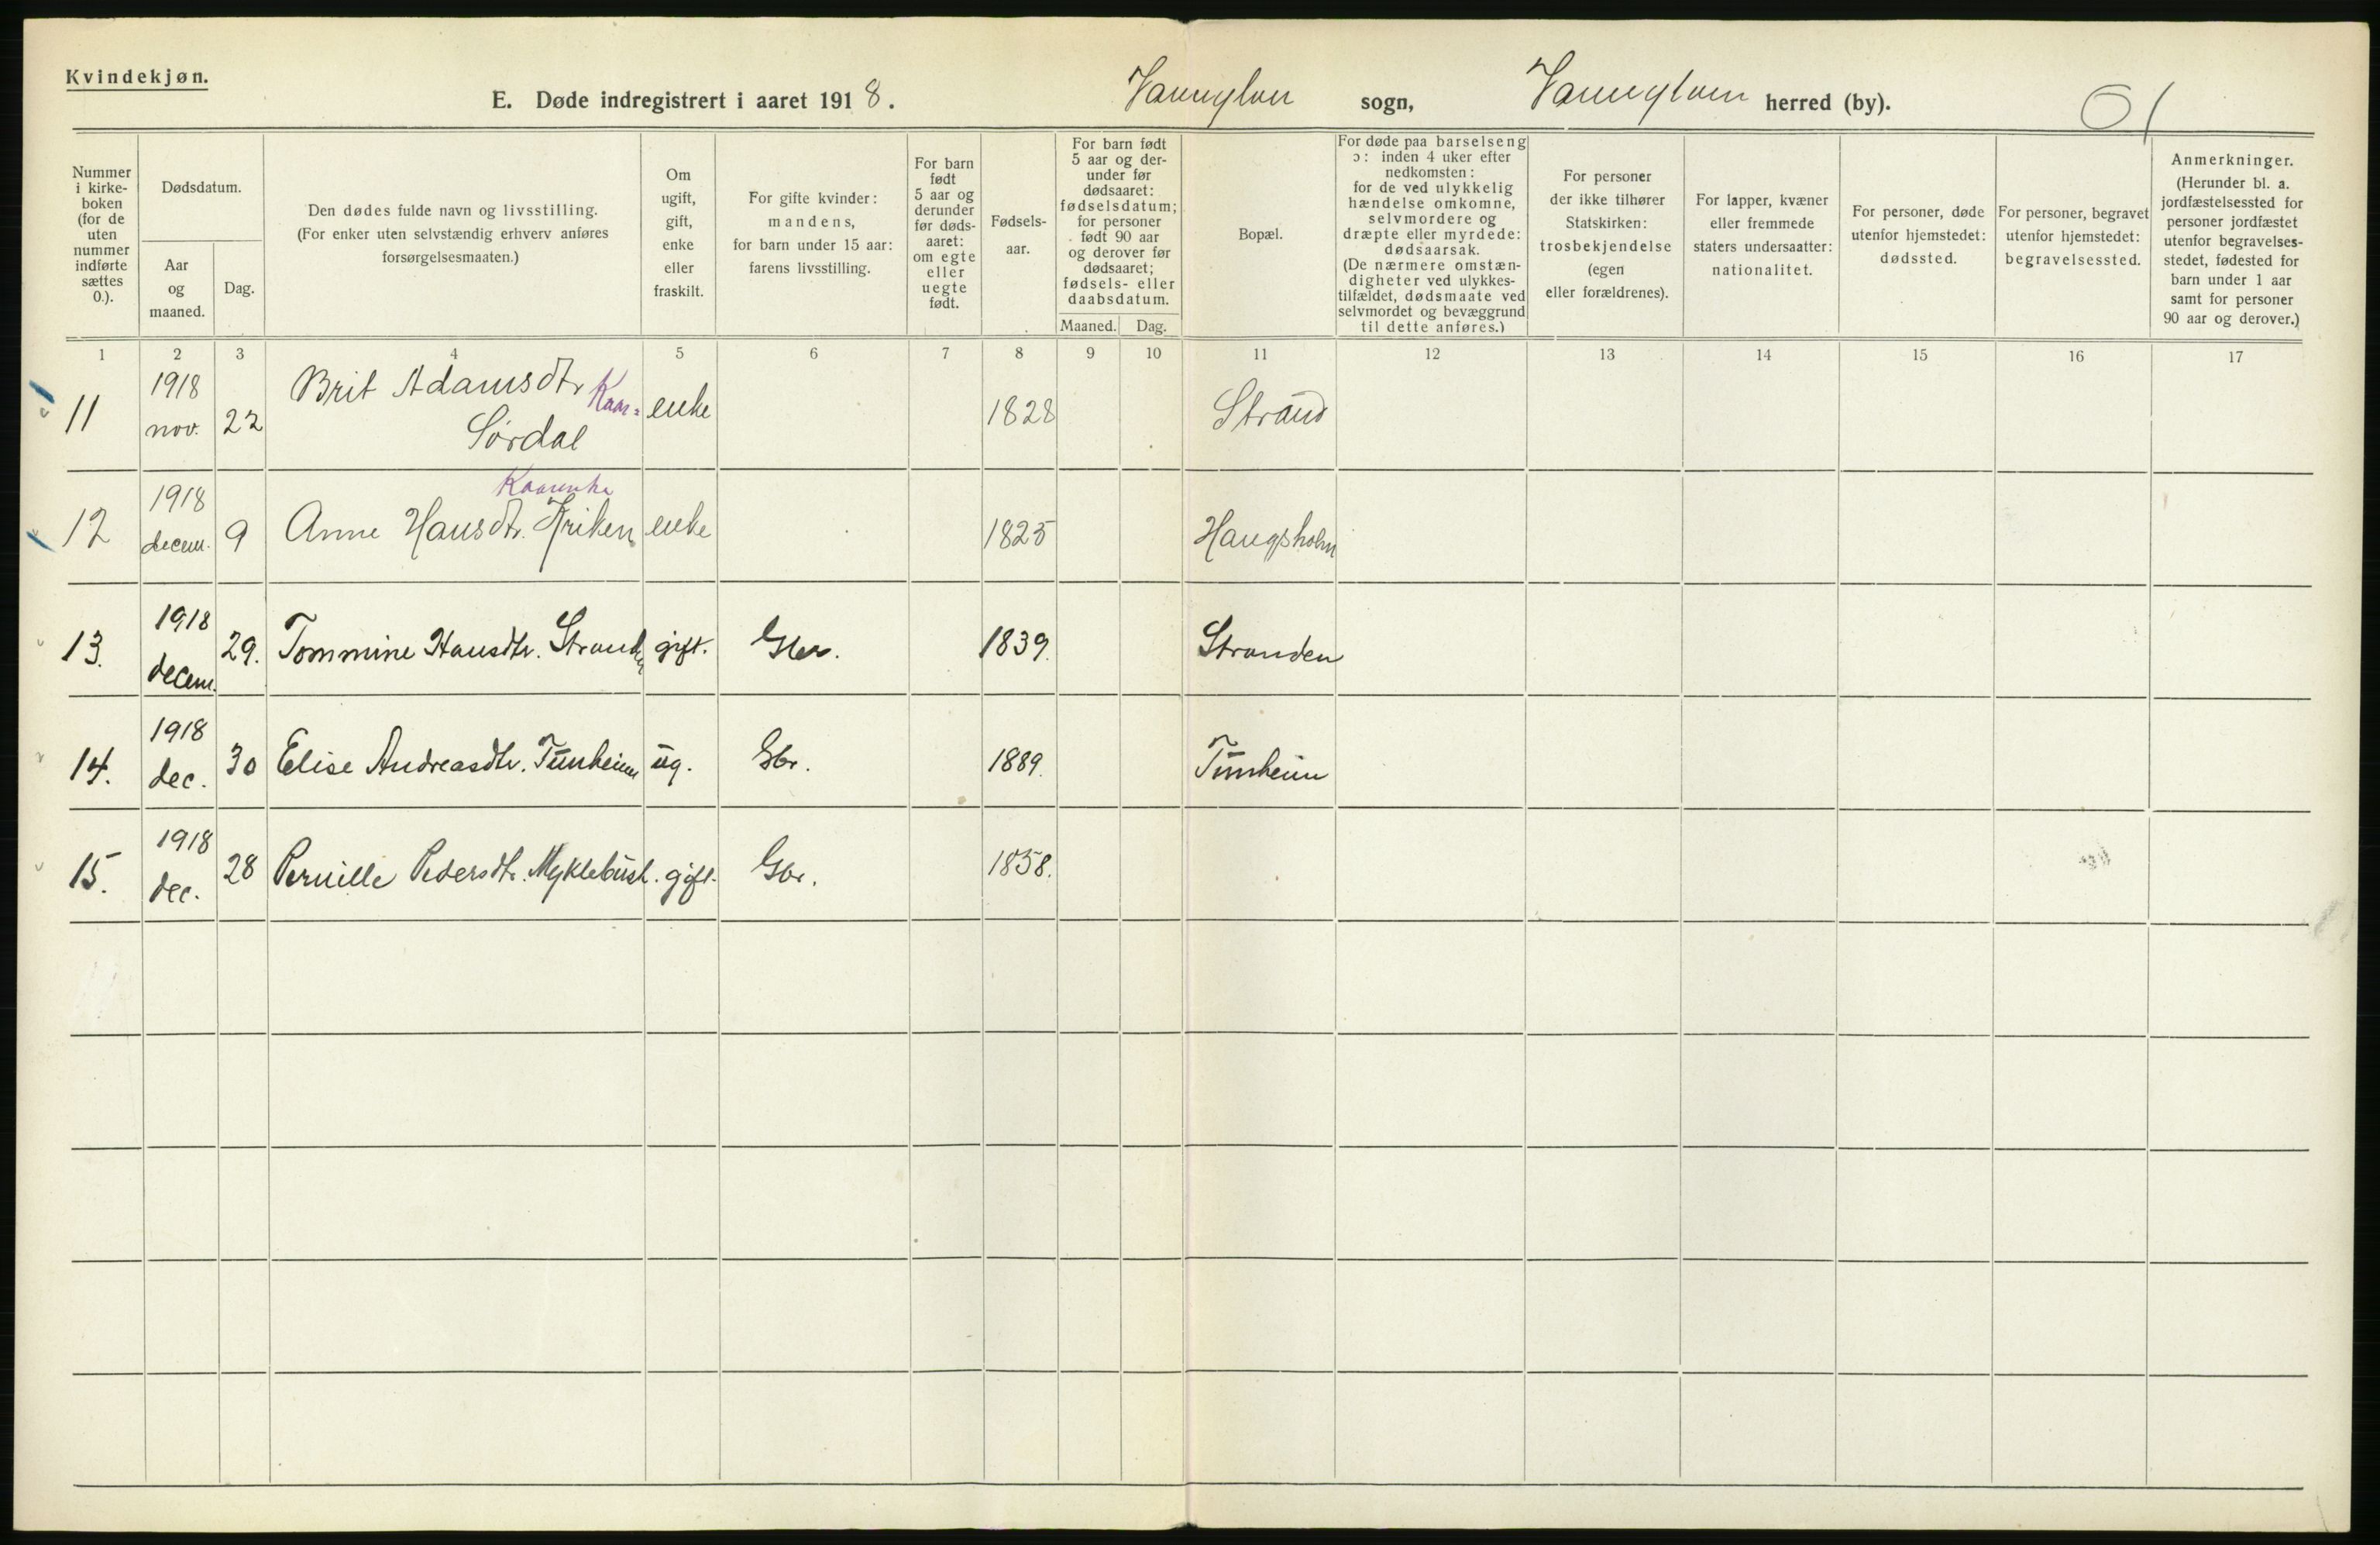 Kvindekjøn.
E. Døde indregistrert i aaret 1918. Vannylven sogn, Vannylven herred (by).
Nummer
i kirke-
boken
(for de
uten
nummer
indførte
sættes
0.).
Dødsdatum.
Aar
og
maaned.
Dag.
Den dødes fulde navn og livsstilling.
(For enker uten selvstændig erhverv anføres
forsørgelsesmaaten.)
Om
ugift,
gift,
enke
eller
fraskilt.
For gifte kvinder:
mandens,
for barn under 15 aar:
farens livsstilling.
For barn
født
5 aar og
derunder
før døds-
aaret:
om egte
eller
uegte
født.
Fødsels-
aar.
For barn født
5 aar og der-
under før
dødsaaret:
fødselsdatum;
for personer
født 90 aar
og derover før
dødsaaret;
fødsels- eller
daabsdatum.
Maaned. Dag.
Bopæl.
For døde paa barselseng
ɔ: inden 4 uker efter
nedkomsten:
for de ved ulykkelig
hændelse omkomne,
selvmordere og
dræpte eller myrdede:
dødsaarsak.
(De nærmere omstæn-
digheter ved ulykkes-
tilfældet, dødsmaate ved
selvmordet og bevæggrund
til dette anføres.)
For personer
der ikke tilhører
Statskirken:
trosbekjendelse
(egen
eller forældrenes).
For lapper, kvæner
eller fremmede
staters undersaatter:
nationalitet.
For personer, døde
utenfor hjemstedet:
dødssted.
For personer, begravet
utenfor hjemstedet:
begravelsessted.
Anmerkninger.
(Herunder bl. a.
jordfæstelsessted for
personer jordfæstet
utenfor begravelses-
stedet, fødested for
barn under 1 aar
samt for personer
90 aar og derover.)
1 2 3 4 5 6 7 8 9 10 11 12 13 14 15 16 17
11 1918 nov. 22 Brit Adamsdtr Kaar= Sørdal enke 1828 Strand
12 1918 decem. 9 Kaarenke Anne Hansdtr. Kriken enke 1825 Haugsholm
13. 1918 decem. 29. Tommine Hansdtr. Stranden gift. Gbr. 1839. Stranden
14. 1918 dec. 30 Elise Andreasdtr. Tunheim ug. Gbr. 1889. Tunheim
15. 1918 dec. 28 Pernille Pedersdtr. Myklebust. gift. Gbr. 1858.